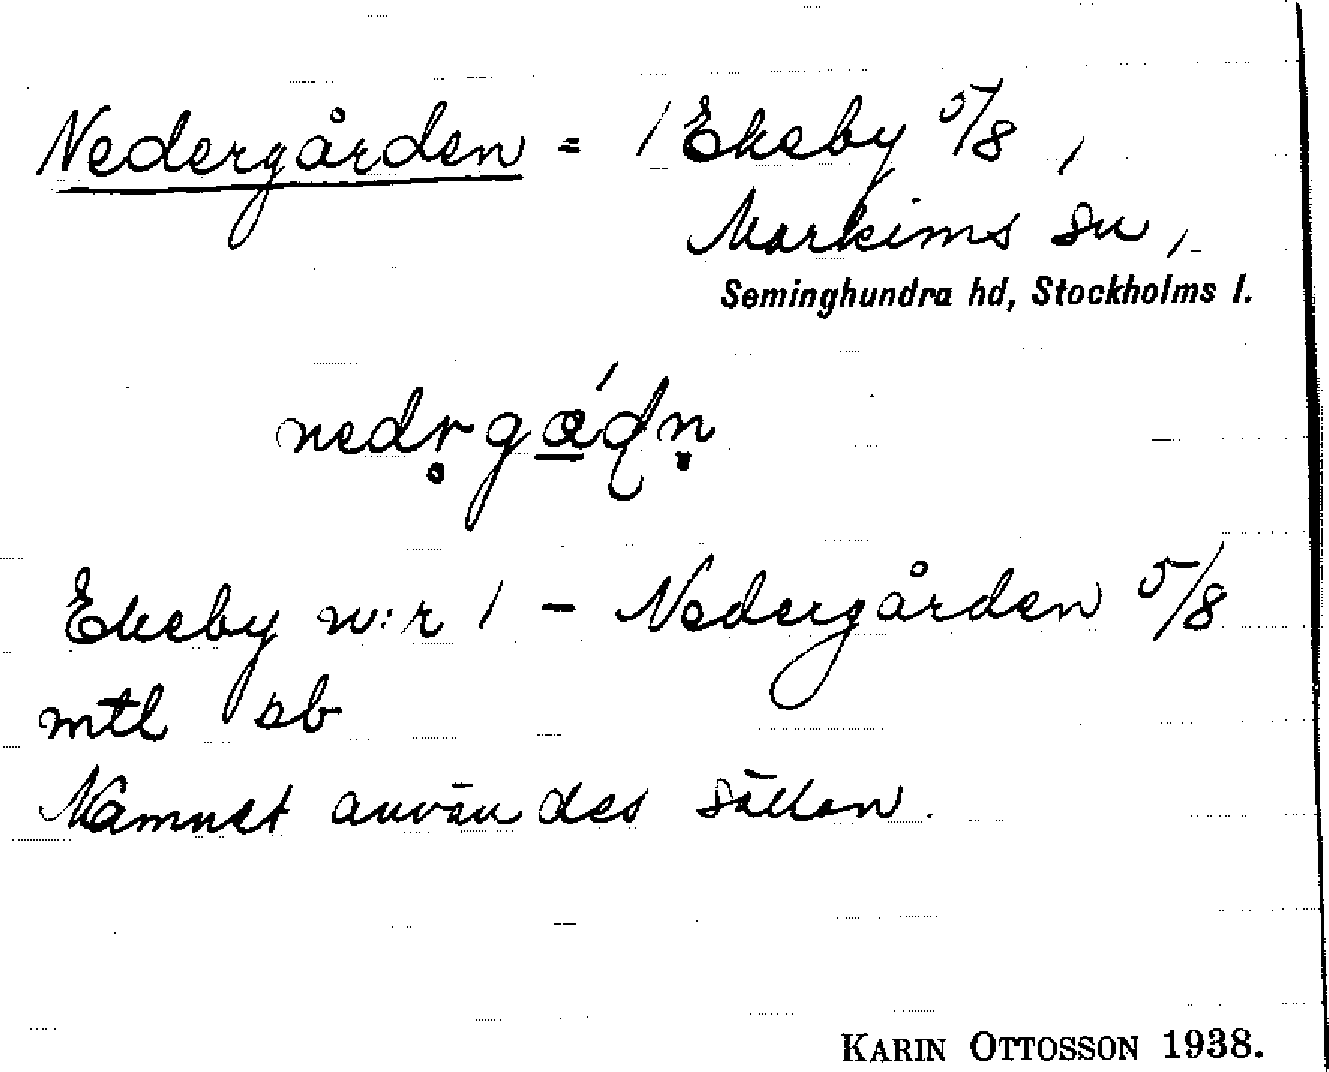 Nedergården = 1 Ekeby 5/8,
Markims sn,
Seminghundra hd, Stockholms l.
nedr̥gɷ́ḍṇ
Ekeby n:r 1 – Nedergården 5/8
mtl sb
Namnet användes sällan.
KARIN OTTOSSON 1938.